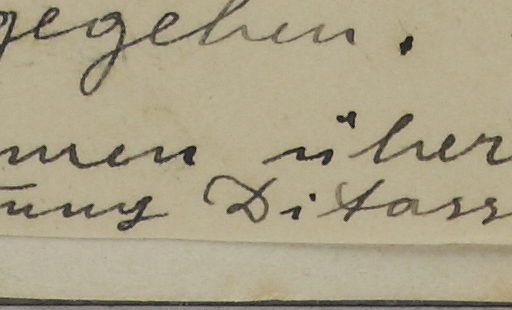 gegeben.
men über
ung